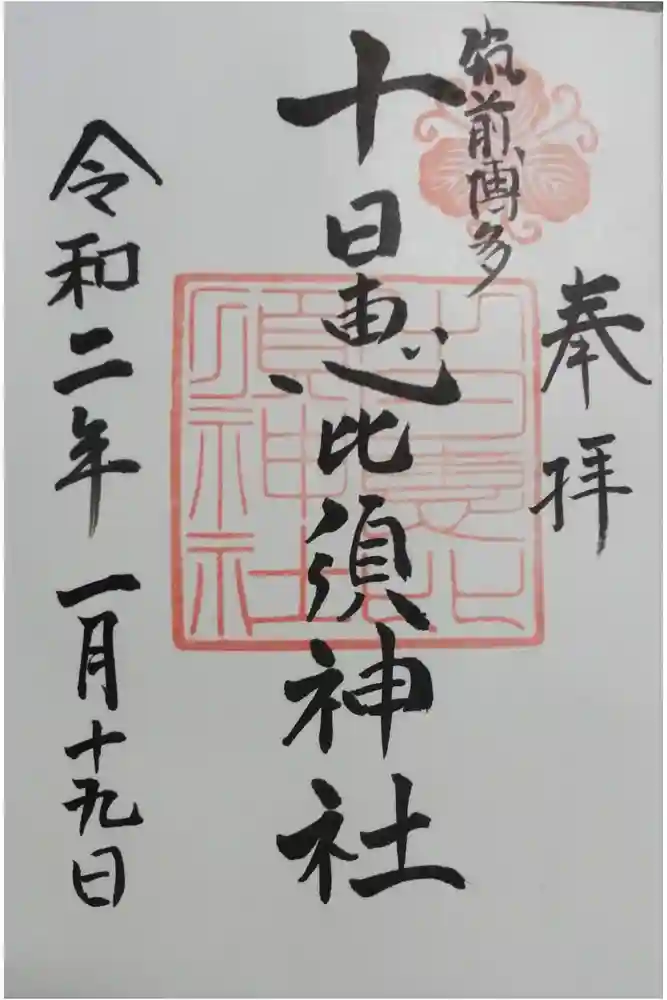 奉拝
筑前博多
十日恵比須神社
十日恵比須神社
令和二年 一月十九日